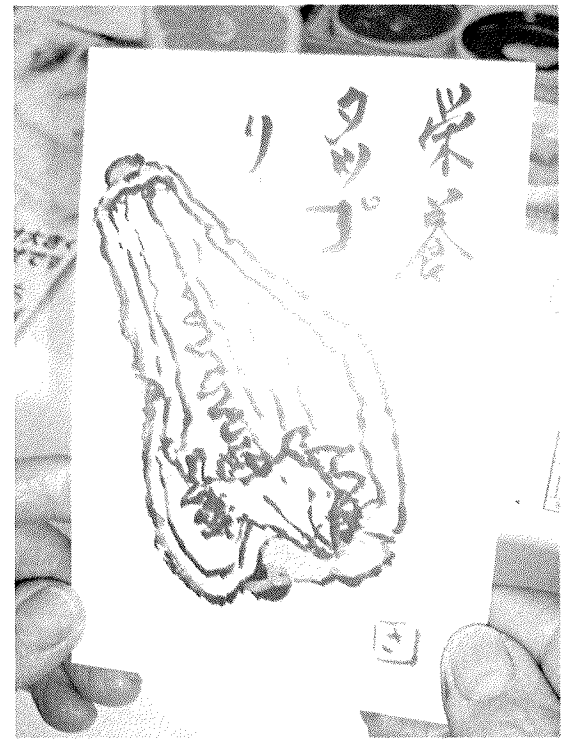 栄養
タップ
リ